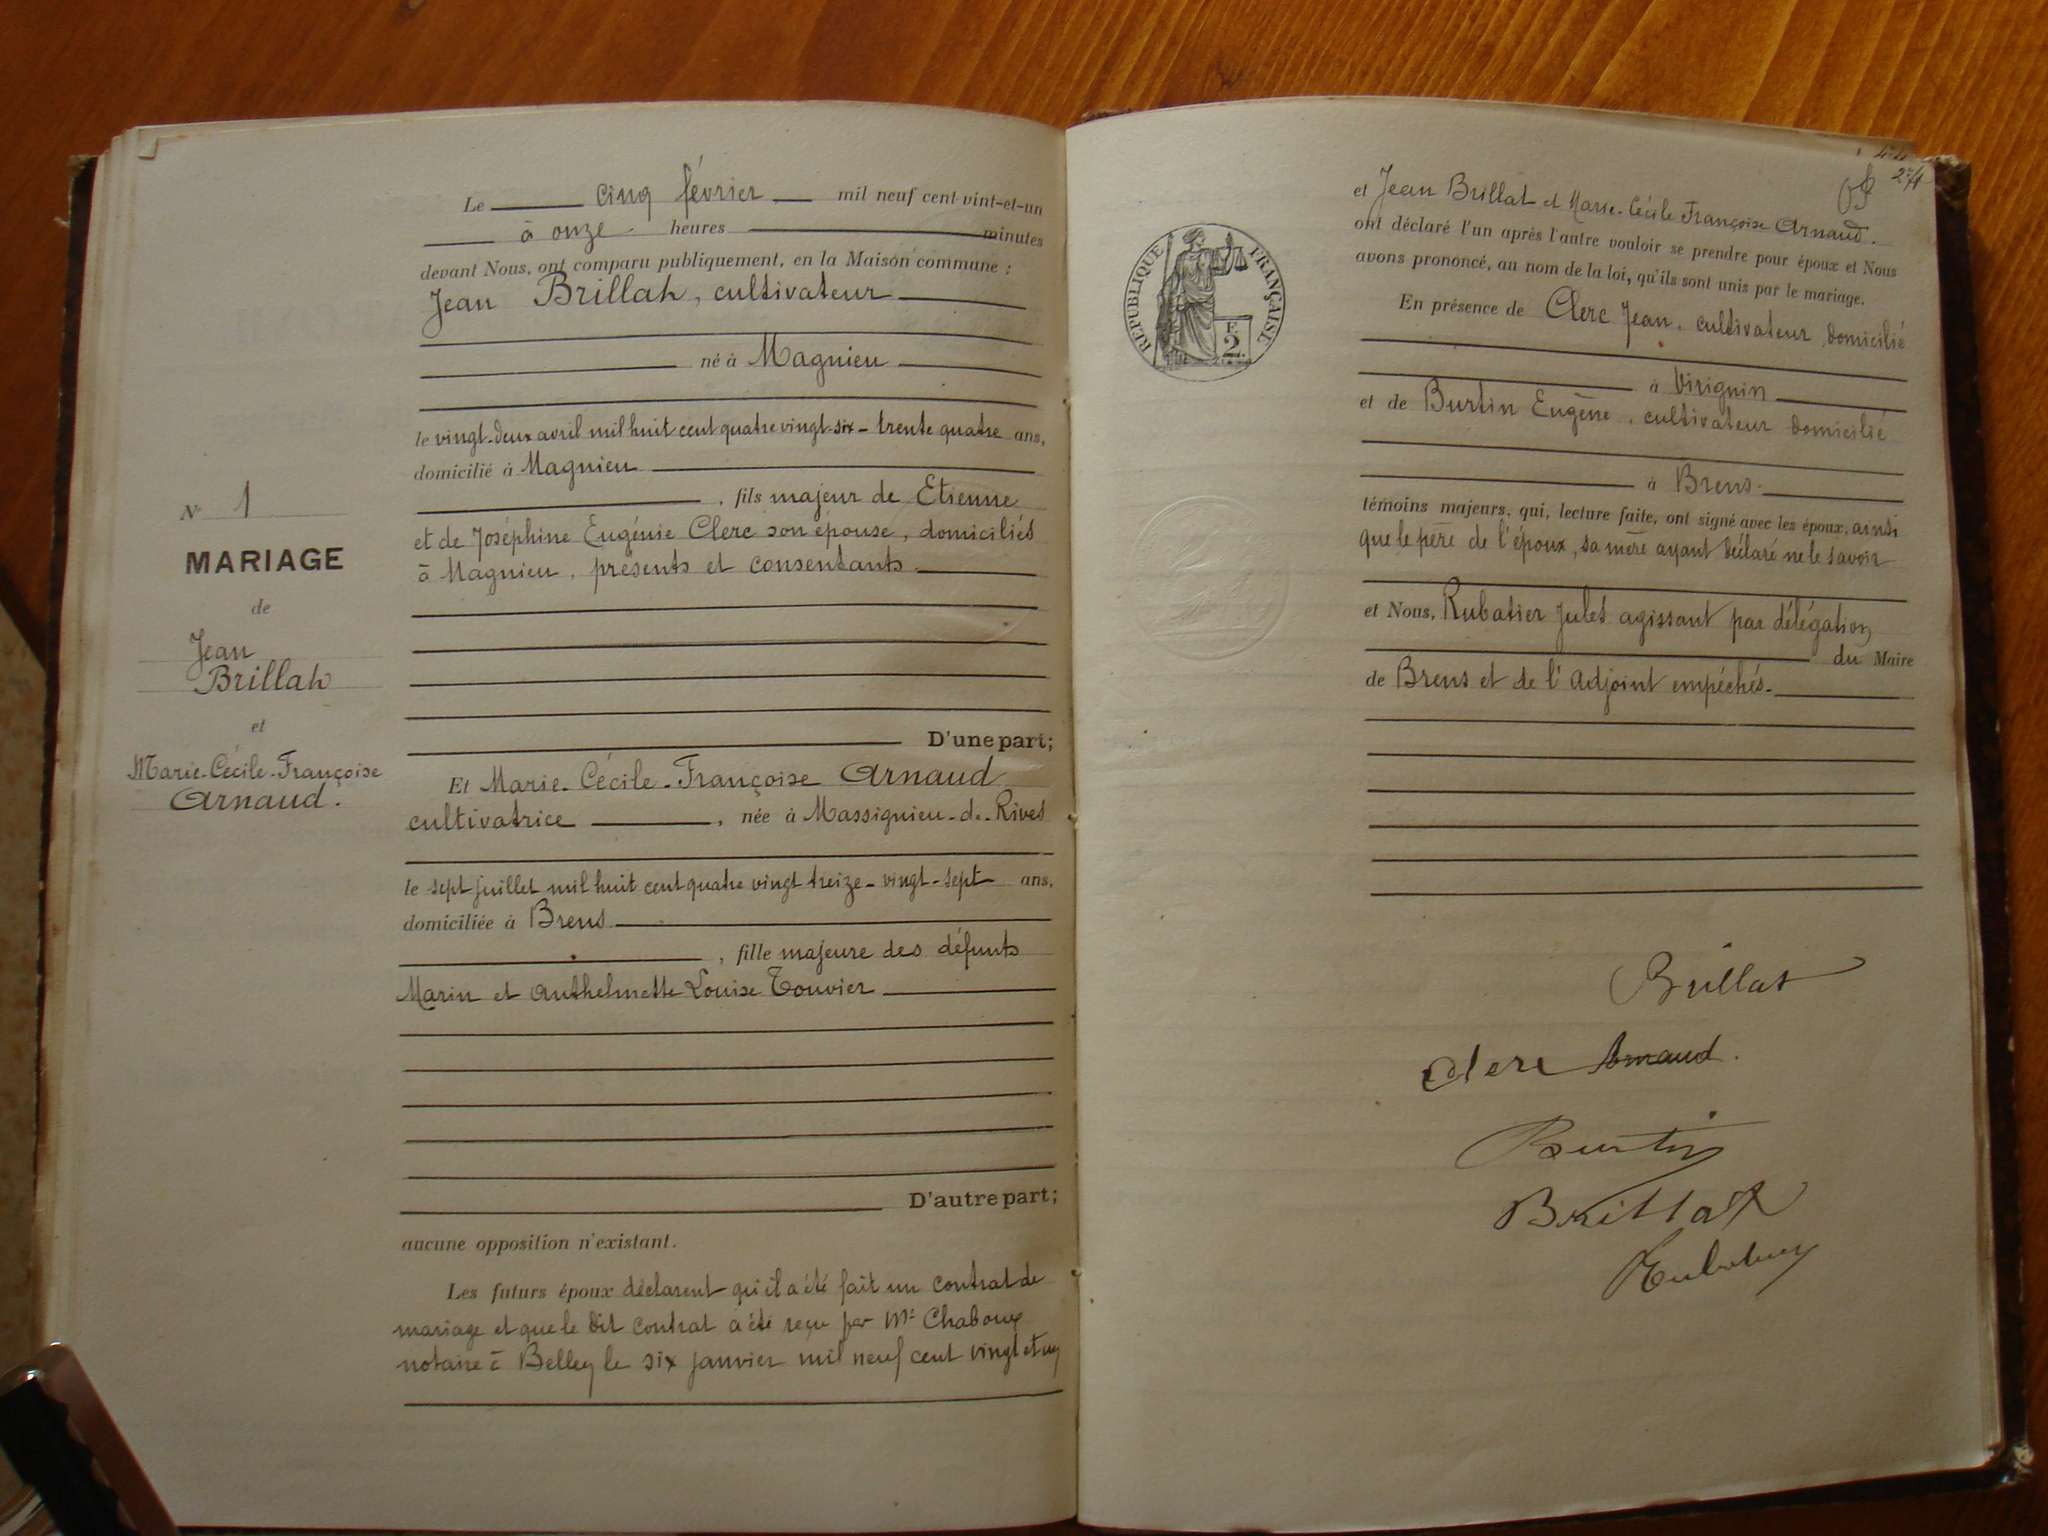 Le cinq février mil neuf cent vint-et-un
à onze heures minutes
devant Nous, ont comparu publiquement, en la Maison commune :
Jean Brillat, cultivateur
né à Magnieu
le vingt-deux avril mil huit cent quatre vingt-six - trente quatre ans,
domicilié à Magnieu
, fils majeur de Etienne
et de Joséphine Eugénie Clerc son épouse, domiciliés
à Magnieu, présents et consentants
N° 1
MARIAGE
de
Jean
Brillat
et
Marie-Cécile-Françoise
Arnaud.
D'une part;
Et Marie-Cécile-Françoise Arnaud
cultivatrice , née à Massignieu-de-Rives
le sept juillet mil huit cent quatre vingt treize - vingt-sept ans,
domiciliée à Brens
, fille majeure des défunts
Marin et Anthelmette Louise Touvier
D'autre part;
aucune opposition n'existant.
Les futurs époux déclarent qu'il a été fait un contrat de
mariage et que le dit contrat a été reçu par Me Chaboux
notaire à Belley le six janvier mil neuf cent vingt et un
et Jean Brillat et Marie-Cécile Françoise Arnaud.
ont déclaré l'un après l'autre vouloir se prendre pour époux et Nous
avons prononcé, au nom de la loi, qu'ils sont unis par le mariage.
RÉPUBLIQUE FRANÇAISE
F.
2
En présence de Clerc Jean, cultivateur domicilié
à Virignin
et de Burtin Eugène, cultivateur domicilié
à Brens.
témoins majeurs, qui, lecture faite, ont signé avec les époux, ainsi
que le père de l'époux, sa mère ayant déclaré ne le savoir
et Nous, Rubatier Jules agissant par délégation
du Maire
de Brens et de l'Adjoint empêchés.
Brillat
Clerc Arnaud.
Burtin
Brillat
Rubatier